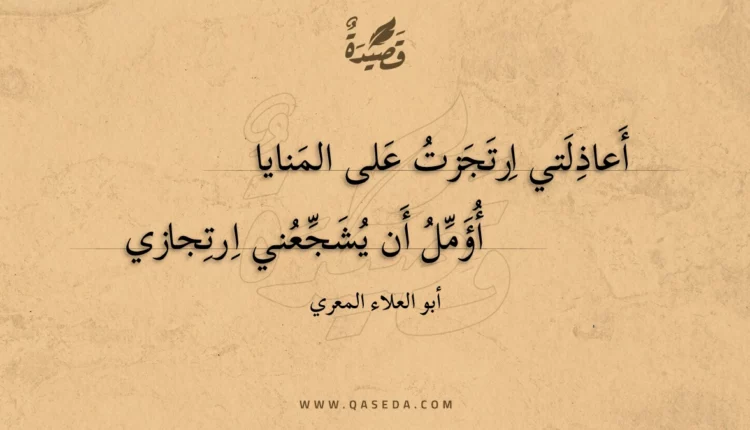 قَصِيدَةٌ
أَعاذِلَتي اِرتَجَزتُ عَلى المَنايا
أُؤَمِّلُ أَن يُشَجِّعُني اِرتِجازي
أبو العلاء المعري
WWW.QASEDA.COM